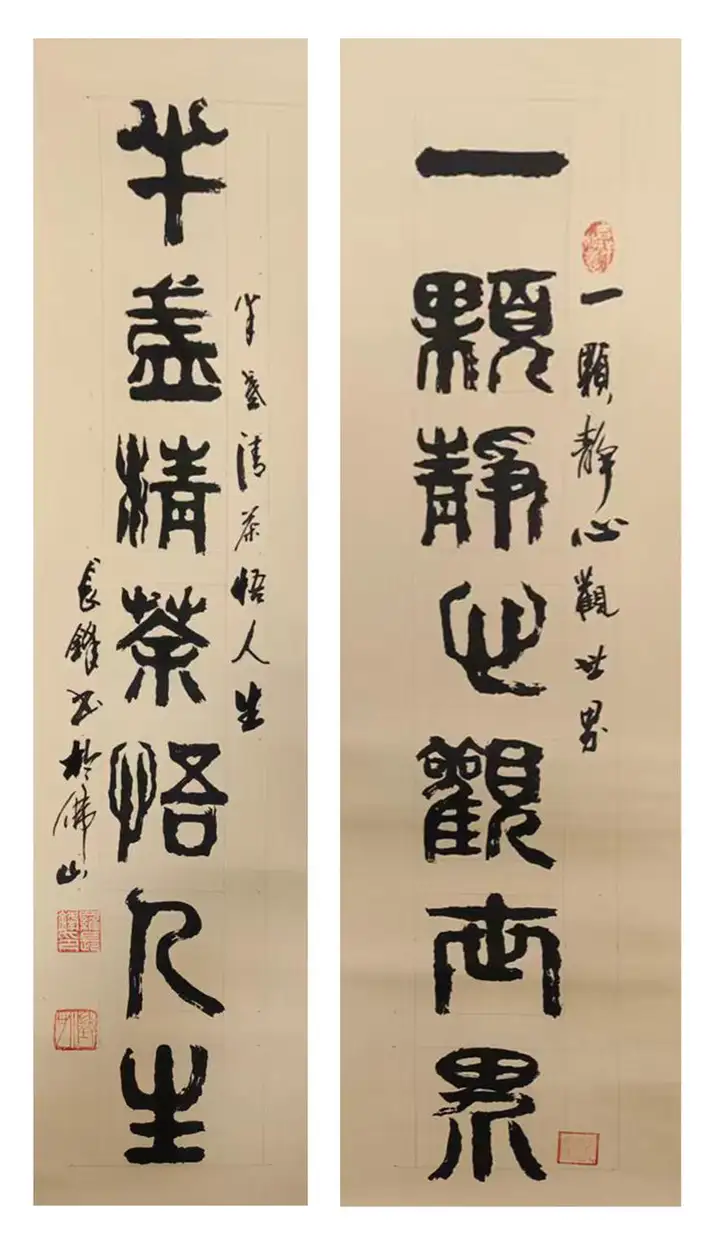 一顆静心觀世界
一顆靜心觀世界
半盞清茶悟人生
半盞清茶悟人生
長鋒书於佛山